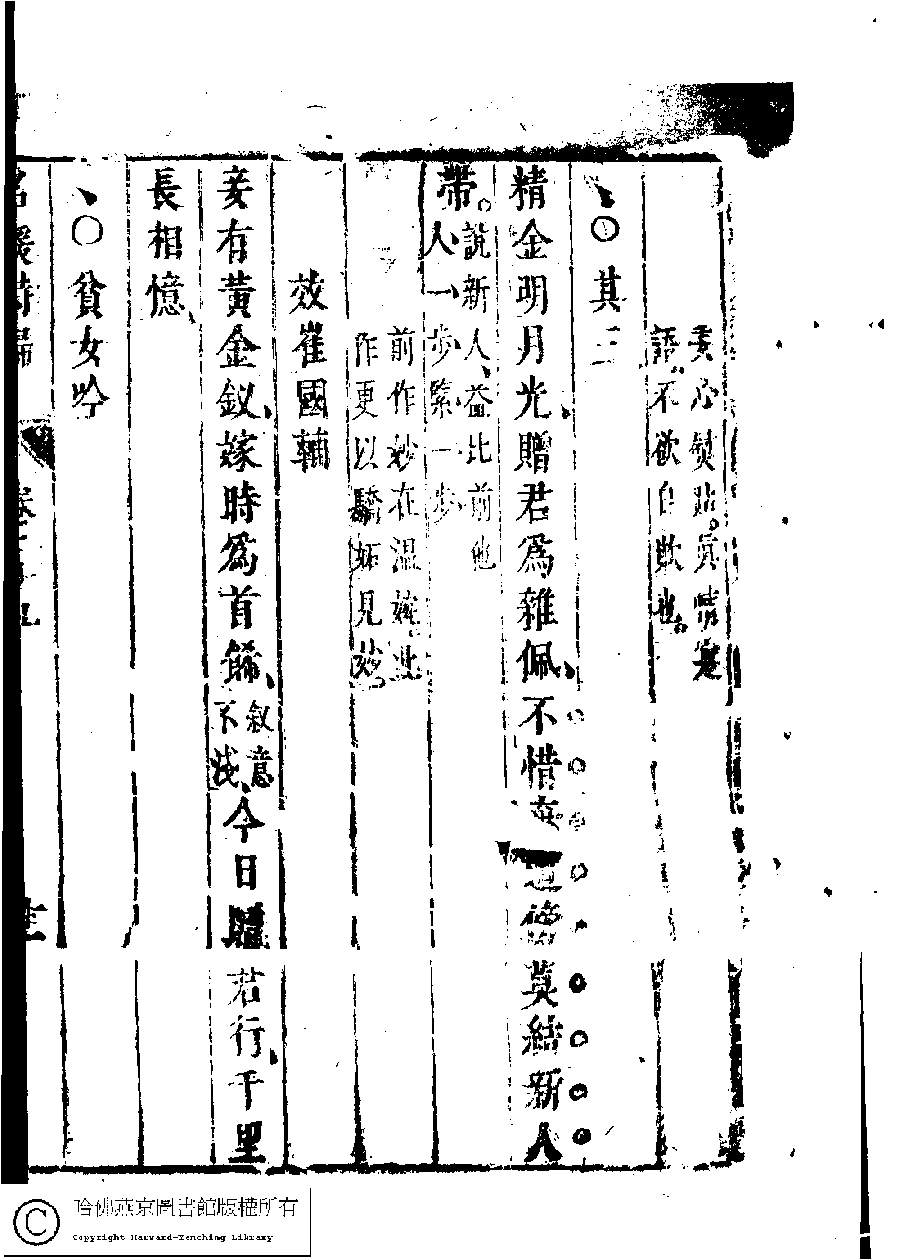 心熨貼。真情寔
語。不欲自欺也。
、○其三
精金明月光、贈君爲雜佩、不惜道莫結新人
帶。
說新人、益比前他
人一步緊一步
前作妙在温婉、此
作更以驕妬見妙。
效崔國輔
妾有黃金釵、嫁時爲首餙、叙意不淺、今日贈君行、千里
長相憶、
、○貧女吟
名媛詩歸 卷
哈佛燕京圖書館版權所有
Copyright Harvard-Yenching Library